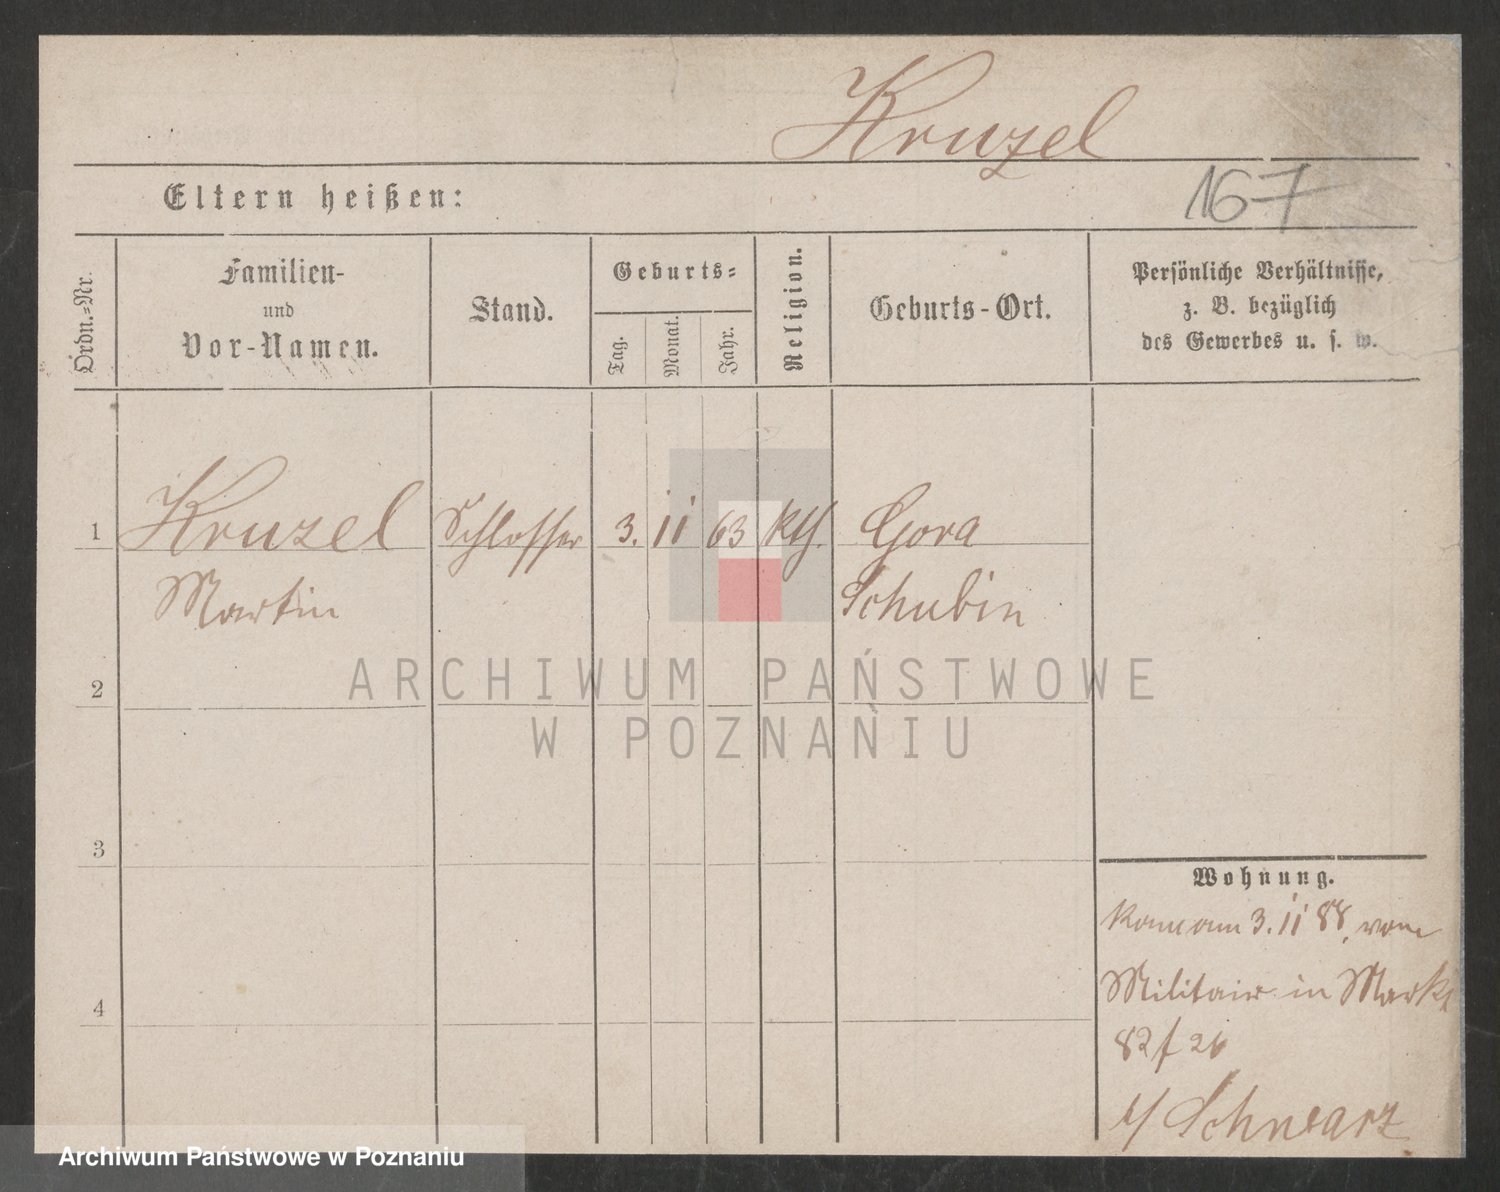 Kruzel
167
Eltern heißen:
Ordn.-Nr.
Familien-
und
Vor-Namen.
Stand.
Geburts-
Tag.
Monat.
Jahr.
Religion.
Geburts-Ort.
Persönliche Verhältnisse,
z. B. bezüglich
des Gewerbes u. s. w.
1 Kruzel Schlosser 3. 11 63 kth. Gora
Martin Schubin
2
3
4
Wohnung.
kam am 3. 11 88, vom
Militair in Markt
82/26
b/ Schwarz
ARCHIWUM PAŃSTWOWE
W POZNANIU
Archiwum Państwowe w Poznaniu